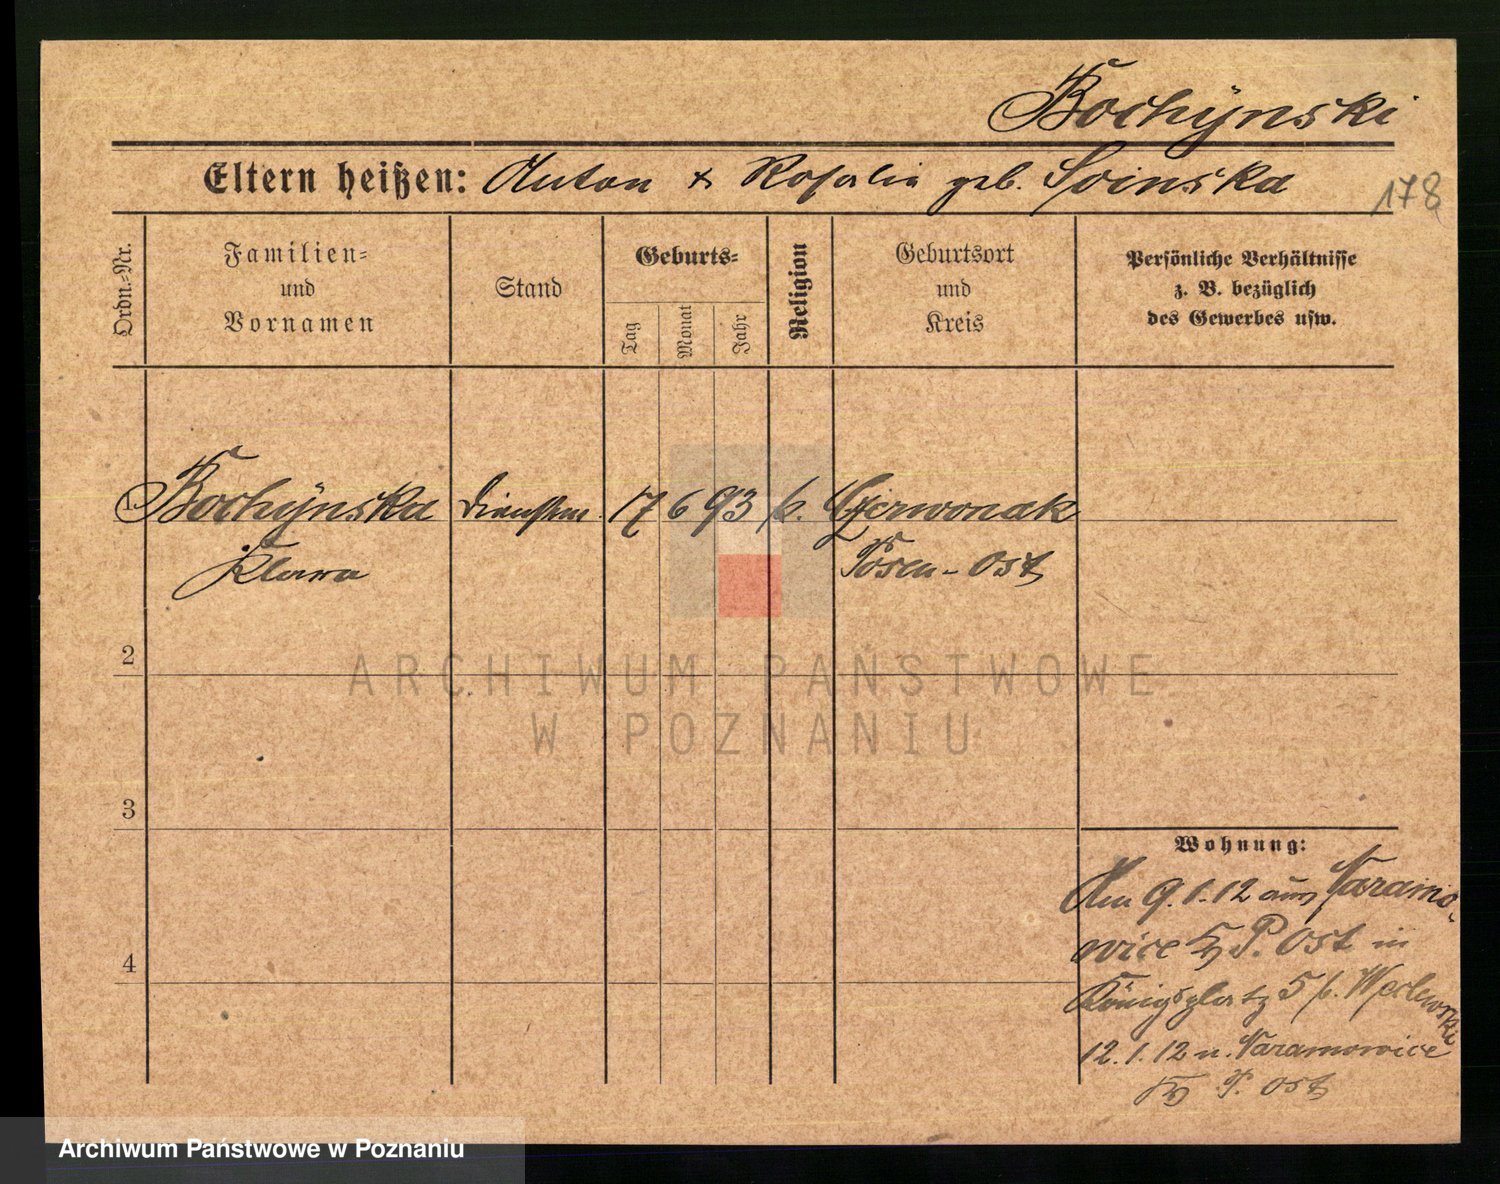 Kochÿnski
Eltern heißen: Anton & Rosalia geb. Soinska
178
Ordn.-Nr.
Familien-
und
Vornamen
Stand
Geburts-
Tag
Monat
Jahr
Religion
Geburtsort
und
Kreis
Persönliche Verhältnisse
z. B. bezüglich
des Gewerbes usw.
1 Kochÿnska 17 6 93 k. Czerwonak
Klara Posen-Ost
2
3
4
Wohnung:
Am 9.1.12 aus Naramo-
wice Kr P. Ost in
Königsplatz 5 b.
12.1.12 n. Naramowice
Kr P. Ost
ARCHIWUM PAŃSTWOWE
W POZNANIU
Archiwum Państwowe w Poznaniu